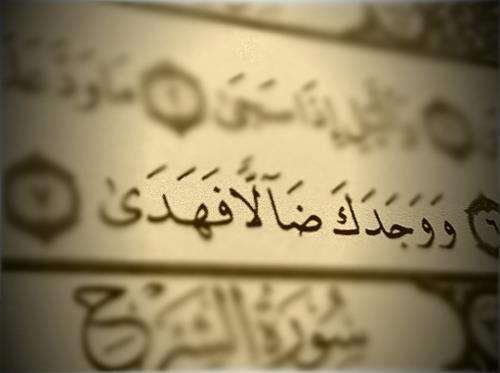 وَٱلَّيْلِ إِذَا سَجَىٰ ٢ مَا
٦ وَوَجَدَكَ ضَآلًّا فَهَدَىٰ ٧
سُورَةُ الشَّرْحِ